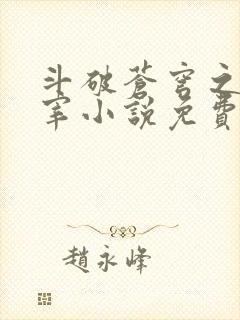 斗破蒼穹之
宰小說免費
趙永峰